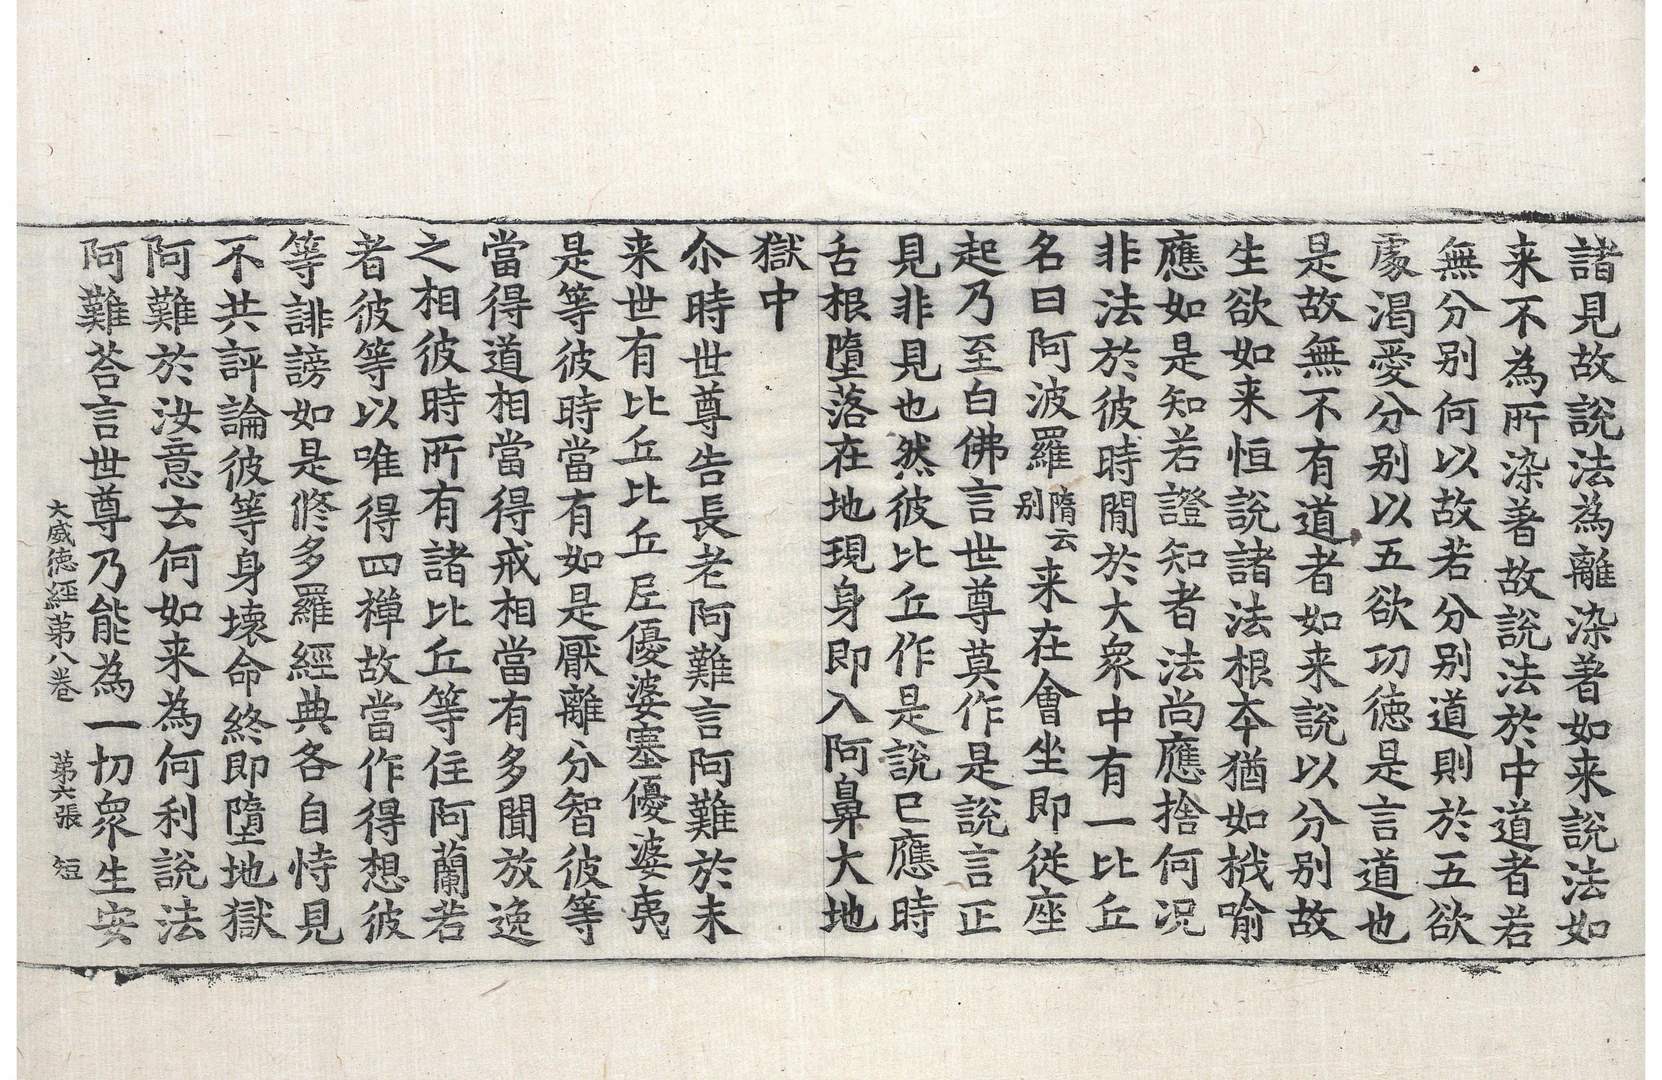 諸見故說法為離染著如来說法如
来不為所染著故說法於中道者若
無分別何以故若分別道則於五欲
䖏渴愛分別以五欲㓛徳是言道也
是故無不有道者如来說以分別故
生欲如来恒說諸法根本猶如栰喻
應如是知若證知者法尚應捨何况
非法於彼時閒於大衆中有一比丘
名曰阿波羅隋云别来在會坐即從座
起乃至白佛言世尊莫作是說言正
見非見也然彼比丘作是說已應時
舌根墮落在地現身即入阿鼻大地
獄中
尒時世尊告長老阿難言阿難於未
来世有比丘比丘尼優婆塞優婆夷
是等彼時當有如是厭離分智彼等
當得道相當得戒相當有多聞放逸
之相彼時所有諸比丘等住阿蘭若
者彼等以唯得四禪故當作得想彼
等誹謗如是修多羅經典各自恃見
不共評論彼等身壊命終即墮地獄
阿難於汝意云何如来為何利說法
阿難荅言世尊乃能為一切衆生安
大威徳經第八卷 第六張 短